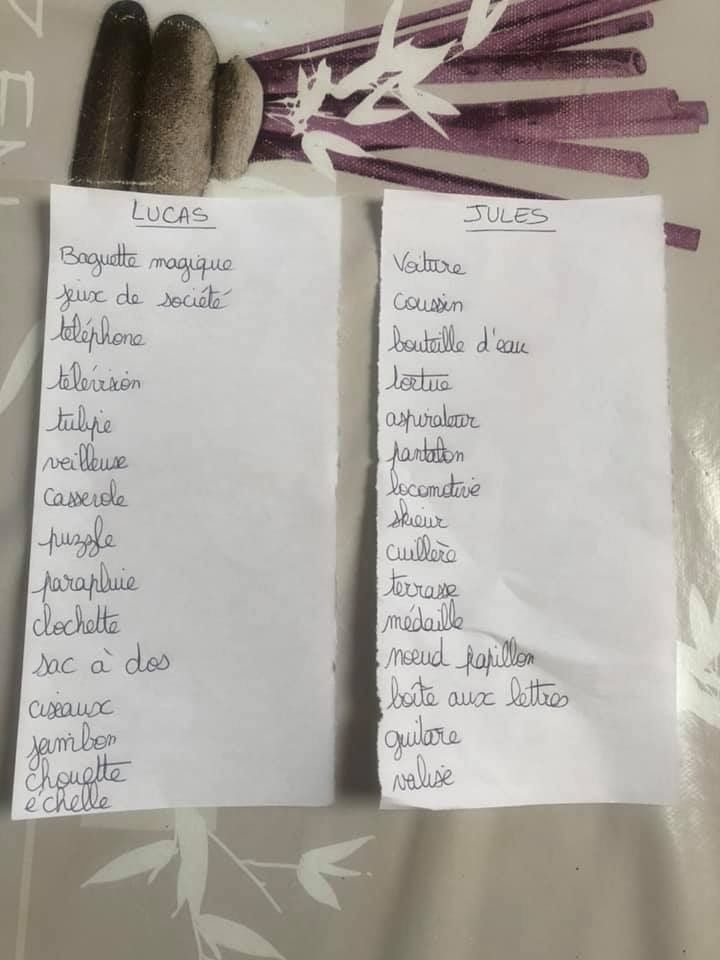 ZEN
LUCAS
Baguette magique
jeux de société
téléphone
télévision
tulipe
veilleuse
casserole
puzzle
parapluie
clochette
sac à dos
ciseaux
jambon
chouette
échelle
JULES
Voiture
coussin
bouteille d'eau
tortue
aspirateur
pantalon
locomotive
skieur
cuillère
terrasse
médaille
noeud papillon
boite aux lettres
guitare
valise